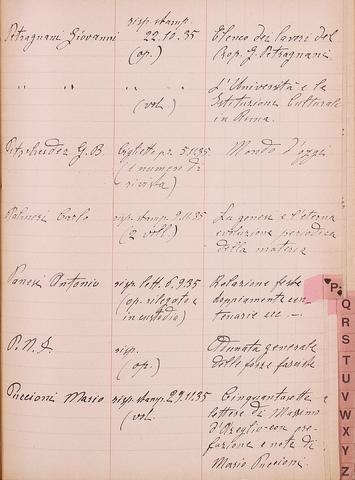 risp. stamp.
Petragnani Giovanni 22.10.35 Elenco dei lavori del
(op.) Prop. G. Petragnani
" " " " L'Università e le
(vol.) Istituzioni Culturali
in Roma.
G. B. Biglietto pr. 5.11.35 Mondo d'oggi
(1 numero di
rivista)
Carlo risp. stamp. 9.11.35 La genesi e l'eterna
(2 voll.) evoluzione periodica
della materia
Panesi Antonio risp. lett. 6.9.35 Relazione feste
(op. rilegato e doppiamente cen
in custodia) tenarie ecc —.
P.N.F. risp. Adunata generale
(op.) delle forze fasciste
Puccioni Mario risp. stamp. 29.11.35 Cinquantasette
(vol. lettere di Massimo
d'Azeglio con pre
fazione e note di
Mario Puccioni.
P
Q
R
S
T
U
V
W
X
Y
Z